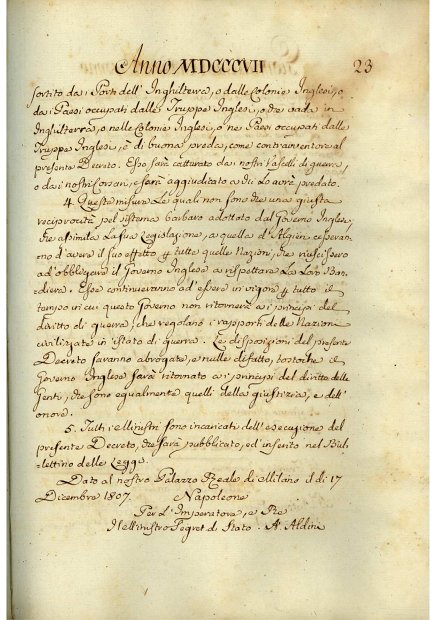 Anno MDCCCVII
23
sortito da i Porti dell'Inghilterra, o dalle Colonie Inglesi, o
da i Paesi occupati dalle Truppe Inglesi, o che vada in
Inghilterra, o nelle Colonie Inglesi, o ne Paesi occupati dalle
Truppe Inglesi, è di buona preda, come contraventore al
presente Decreto. Esso sarà catturato da i nostri Vascelli di guerra,
o da i nostri Corsari, e sarà aggiudicato a chi lo avrà predato.
4. Queste misure le quali non sono che una giusta
reciprocità pel sistema barbaro adottato dal Governo Inglese,
che assimila la sua Legislazione, a quella d'Algieri cesseran=
no d'avere il suo effetto p tutte quelle Nazioni, che riuscissero
ad'obbligare il Governo Inglese a rispettare la Loro Ban=
diera. Esse continueranno ad'essere in vigore p tutto il
tempo in cui questo Governo non ritornerà a i principi del
diritto di guerra, che regolano i rapporti delle Nazioni
civilizate in istato di guerra. Le disposizioni del presente
Decreto saranno abrogate, e nulle di fatto, tostochè il
Governo Inglese sarà ritornato a i principi del diritto delle
Genti, che sono egualmente quelli della giustizia, e dell'
onore.
5. Tutti i Ministri sono incaricati dell'esecuzione del
presente Decreto, che sarà pubblicato, ed inserito nel Bul=
lettino delle Leggi.
Dato al nostro Palazzo Reale di Milano il dì 17
Dicembre 1807. Napoleone
Per L'Imperatore, e Re
Il Ministro Segret di Stato. A. Aldini